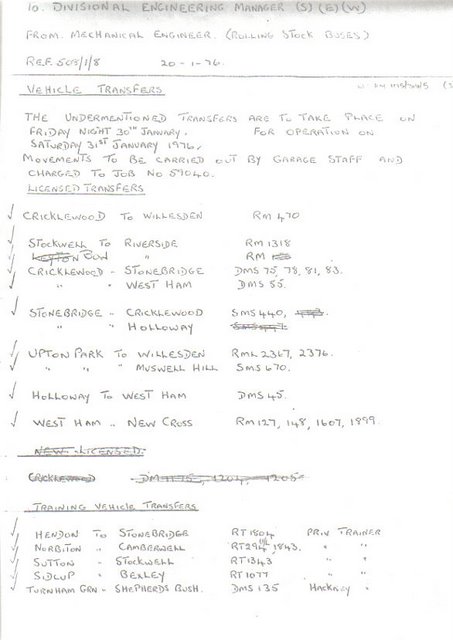 TO. DIVISIONAL ENGINEERING MANAGER (S) (E) (W)
FROM. MECHANICAL ENGINEER. (ROLLING STOCK BUSES)
REF. 508/1/8 20-1-76.
VEHICLE TRANSFERS
THE UNDERMENTIONED TRANSFERS ARE TO TAKE PLACE ON
FRIDAY NIGHT 30TH JANUARY. FOR OPERATION ON
SATURDAY 31ST JANUARY 1976.
MOVEMENTS TO BE CARRIED OUT BY GARAGE STAFF AND
CHARGED TO JOB NO 59040.
LICENSED TRANSFERS
CRICKLEWOOD TO WILLESDEN RM 470
STOCKWELL TO RIVERSIDE RM 1318
LEYTON BOW " RM
CRICKLEWOOD - STONEBRIDGE DMS 75, 78, 81, 83.
" " WEST HAM DMS 55.
STONEBRIDGE - CRICKLEWOOD SMS 440,
" " HOLLOWAY
UPTON PARK TO WILLESDEN RML 2367, 2376.
" " " MUSWELL HILL SMS 670.
HOLLOWAY TO WEST HAM DMS 45.
WEST HAM - NEW CROSS RM 127, 148, 1607, 1899.
NEW - LICENSED.
CRICKLEWOOD DM 1175, 1204, 1205
TRAINING VEHICLE TRANSFERS
HENDON TO STONEBRIDGE RT 1804 PRIV TRAINER
NORBITON " CAMBERWELL 1843. " "
SUTTON - STOCKWELL RT 1343 " "
SIDCUP " BEXLEY RT 1077 " "
TURNHAM GRN - SHEPHERDS BUSH. DMS 135 HACKNEY "